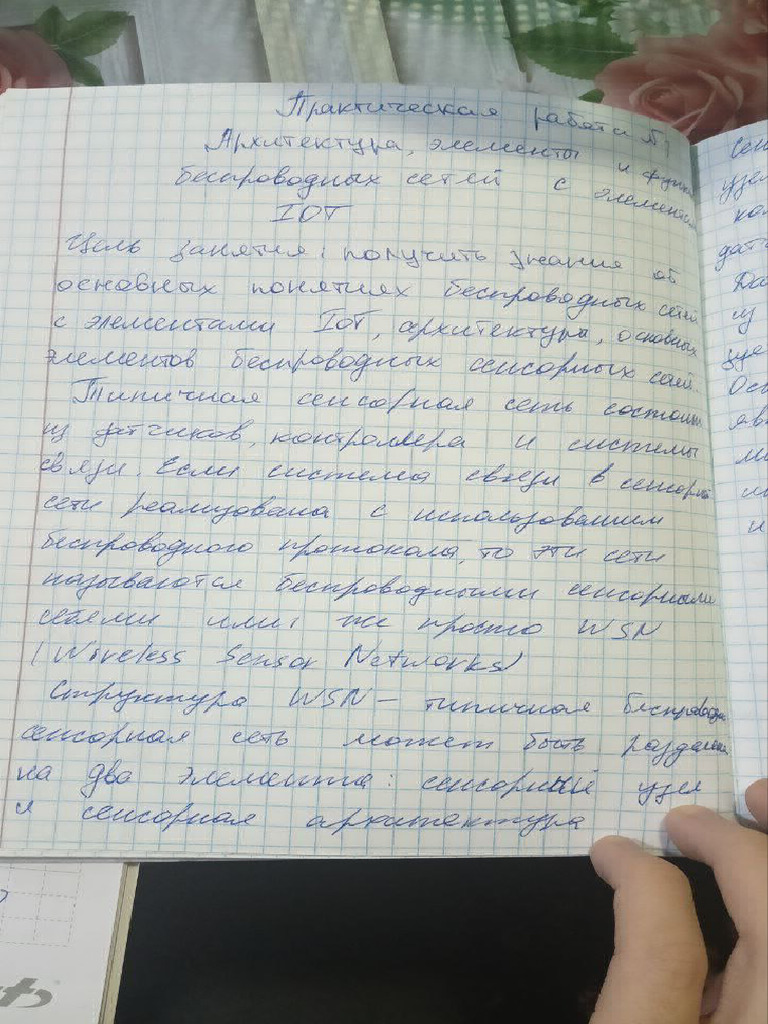 Практическая работа №1
Архитектура, элементы и функ
беспроводных сетей с элемента
IOT
Цель занятия: получить знания об
основных понятиях беспроводных сетей
с элементами IoT, архитектура, основных
элементов беспроводных сенсорных сетей.
Типичная сенсорная сеть состоит
из датчиков, контроллера и системы
связи. Если система связи в сенсорн
сети реализована с использованием
беспроводного протокола, то эти сети
называются беспроводными сенсорными
сетями или же просто WSN
(Wireless Sensor Networks)
Структура WSN – типичная беспроводн
сенсорная сеть может быть разделена
на два элемента: сенсорный узел
и сенсорная архитектура
Сен
узе
ко
дат
Да
из
зуе
Ос
ав
ми
и